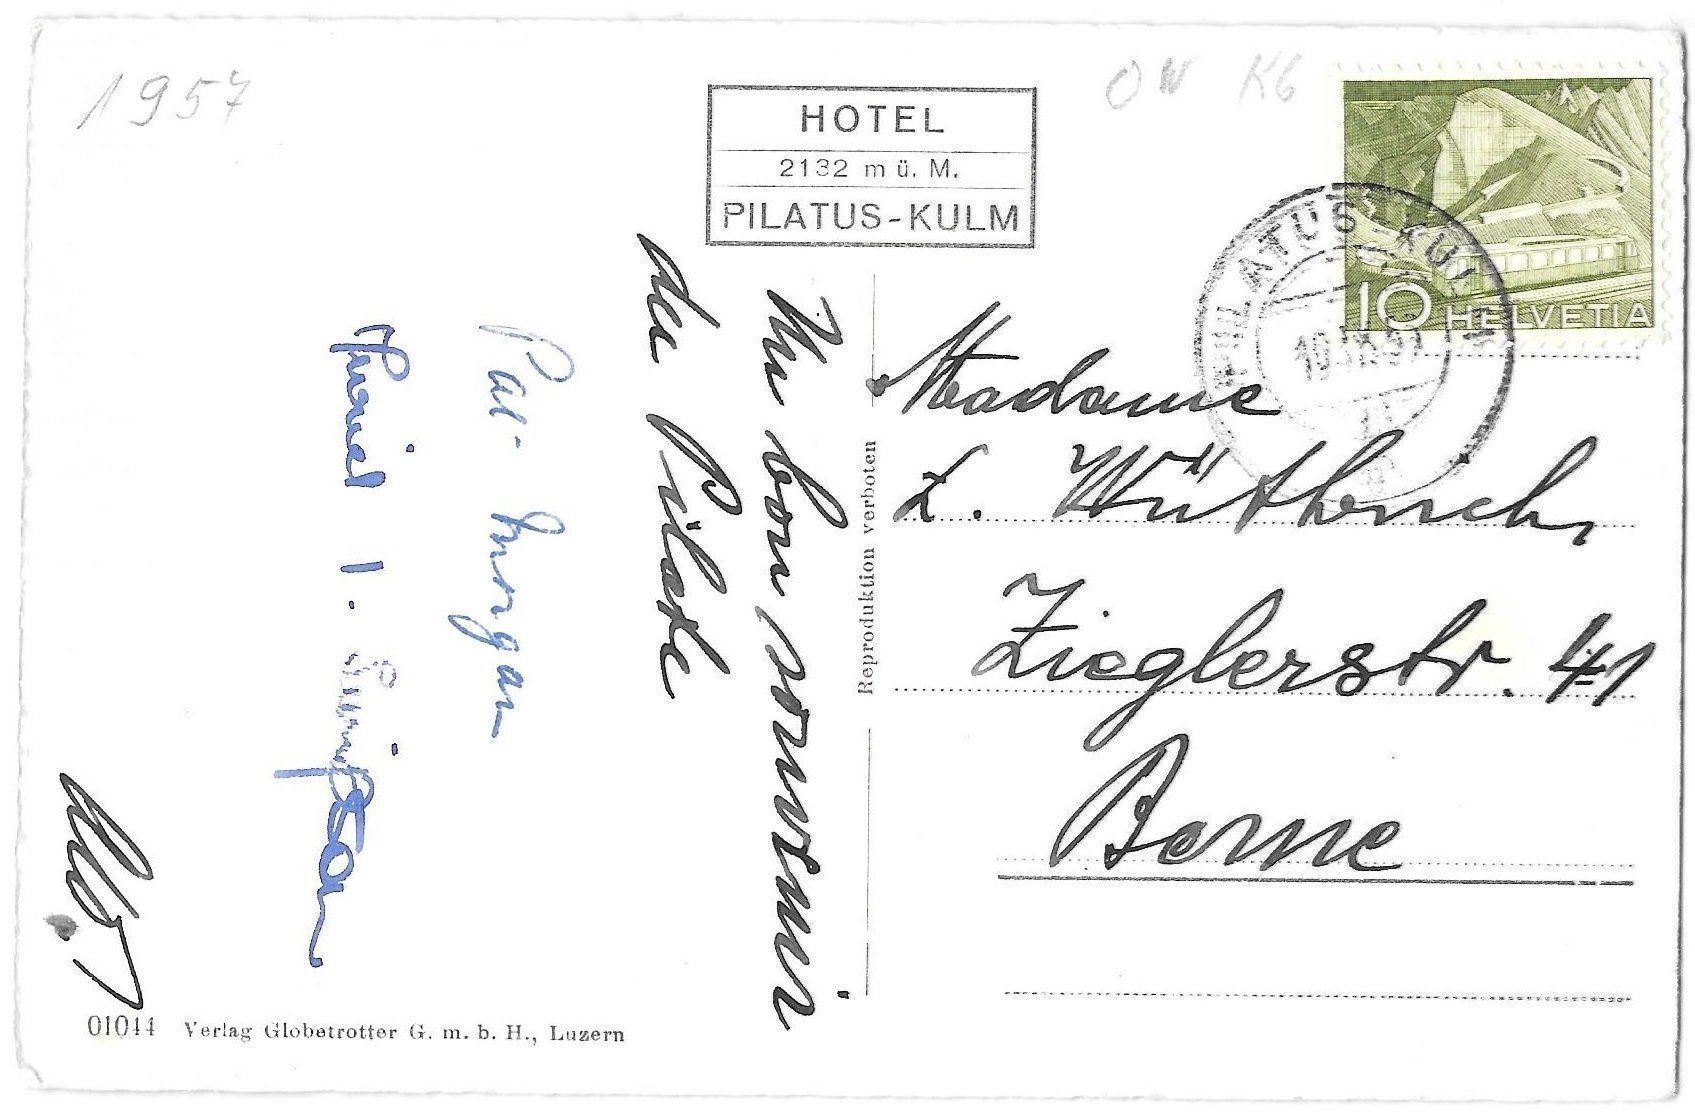 1957
ON K6
HOTEL
2132 m ü. M.
PILATUS-KULM
10 HELVETIA
PILATUS-KULM
10.IX.57
Un bon souvenir
du Pilate
Pat Morgan
Muriel I. Simpson
Madame
L. Wüthrich,
Zieglerstr. 41
Berne
Reproduktion verboten
01044 Verlag Globetrotter G. m. b. H., Luzern